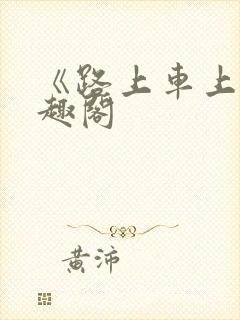 《路上車上
趣閣
黃沛